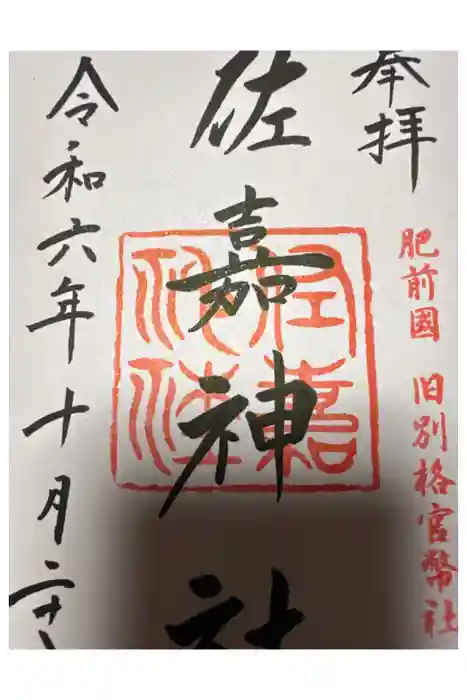 奉拝
肥前國 旧別格官幣社
佐嘉神社
佐嘉神社
令和六年十月二十